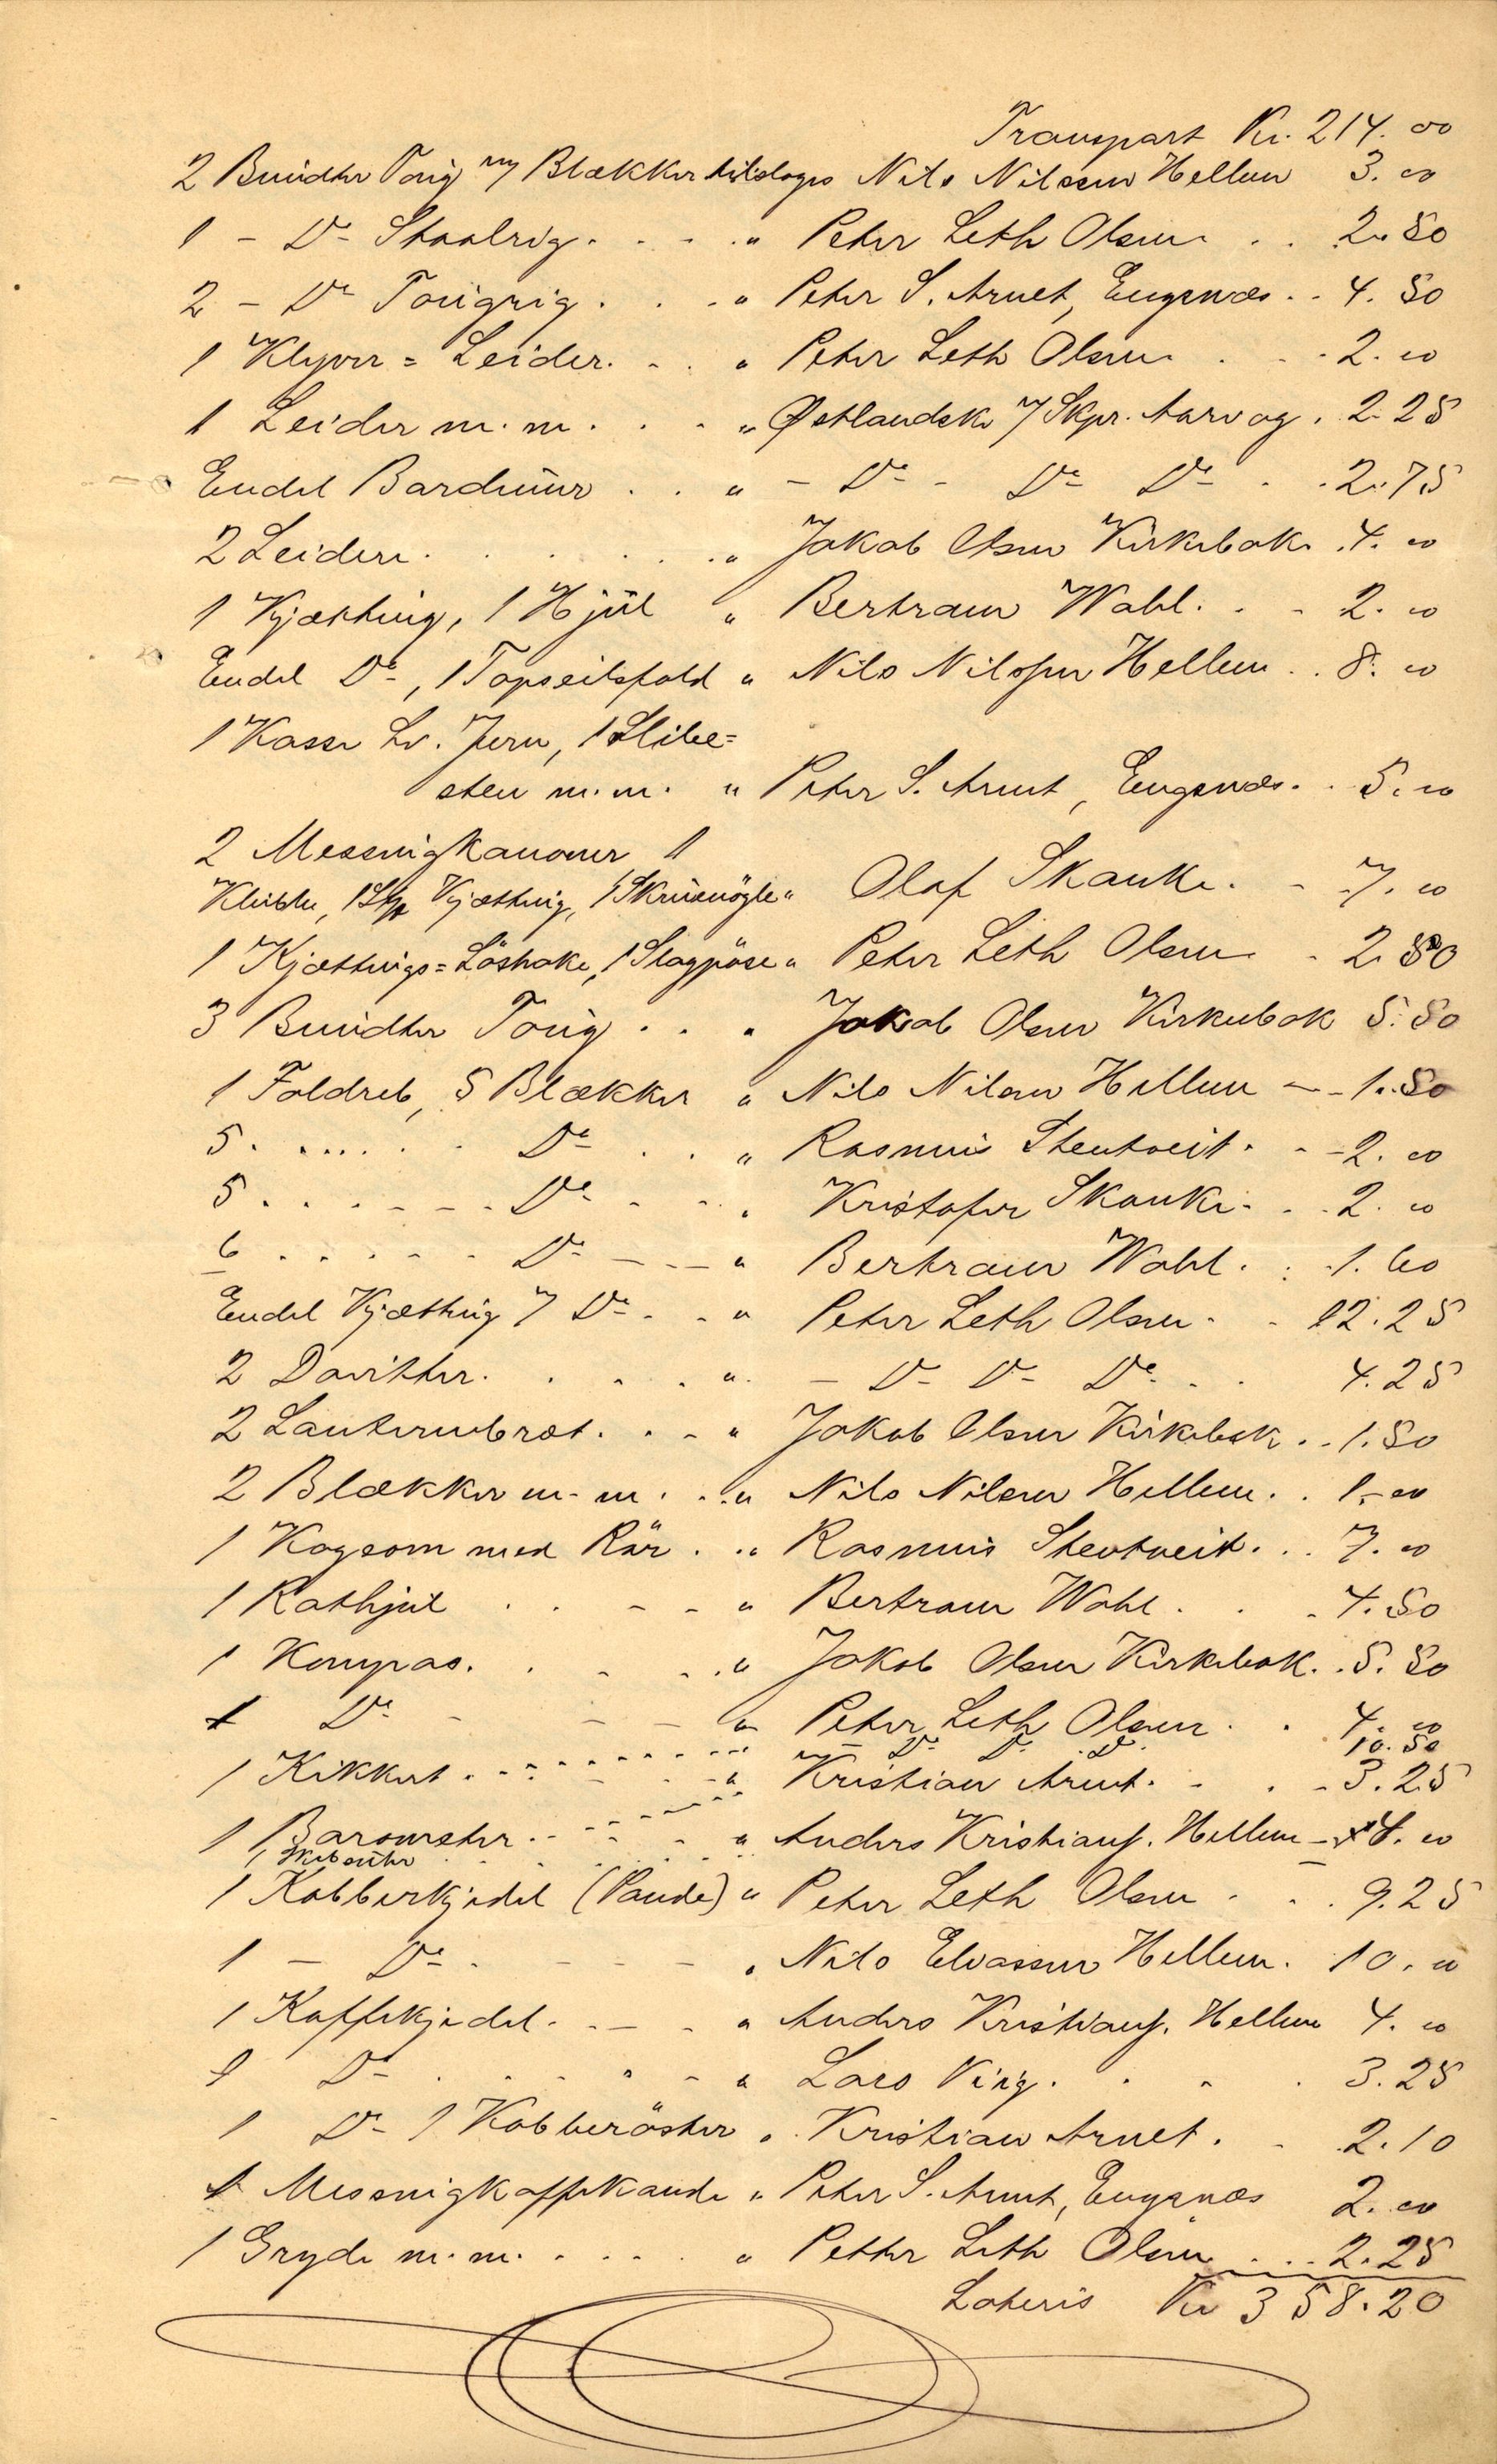 Transport Kr. 214.00
2 Bundter Toug m/ Blækker tilsloges Nils Nilssen Hellem 3.00
1 - Do Staalrig . . . . " Peter Leth Olsen . . 2.50
2 - Do Tougrig . . . " Peter S. Arnet, Eugenæs . . 4.50
1 Klyver = Leider . . . " Peter Leth Olsen . . . 2.00
1 Leider m. m. . . . " Østlandske v/ Skpr. Aarvog . 2.25
Endel Barduner . . " - Do - Do Do . . 2.75
2 Leidere . . . . . . " Jakob Olsen Kirkebak . 4.00
1 Kjætting, 1 Hjul " Bertram Wahl . . . 2.00
Endel Do, 1 Topseilsfald " Nils Nilssen Hellem . . 8.00
1 Kasse Lv. Jern, 1 Slibe=
sten m. m. " Peter S. Arnet, Eugenæs . . 5.00
2 Messingkanoner 1
Kleible, 1 Stp Kjætting, 1 Skruenögle " Olaf Skanke . . 7.00
1 Kjættings = Löshake, 1 Slagpöse " Peter Leth Olsen . 2.50
3 Bundter Toug . . . " Jakob Olsen Kirkebak 5.50
1 Foldreb, 5 Blækker " Nils Nilsen Hellem - - 1.50
5 . . . . . . Do . . " Rasmus Stentveit . . - 2.00
5 . . . . . . Do . . . " Kristofer Skanke . . . 2.00
6 . . . . . . Do . . . " Bertram Wahl . . . 1.60
Endel Kjætting & Do . . " Peter Leth Olsen . . 12.25
2 Davitter . . . . . " - Do Do Do . . 4.25
2 Lanternebræt . . . " Jakob Olsen Kirkebak . . 1.50
2 Blækker m. m. . . " Nils Nilsen Hellem . . 1.00
1 Kogeovn med Rör . . " Rasmus Stentveit . . . 7.00
1 Rathjul . . . . . " Bertram Wahl . . . 4.50
1 Kompas . . . . . " Jakob Olsen Kirkebak . . 5.50
1 Do - - - " Peter Leth Olsen . . 4.00
1 Kikkert . . . . . . " Kristian Arnet . . . . 3.25
- Do Do Do . 10.50
1 Barometer . . . . " Anders Kristians. Hellem - 4.00
1 Skibsuhr
1 Kobberkjedel (Pande) " Peter Leth Olsen . . . 9.25
1 - Do . - - - " Nils Eliassen Hellem . 10.00
1 Kaffekjedel . . - . " Anders Kristians. Hellem 4.00
1 Do . . . . . " Lars Ving . . . . 3.25
1 Do 1 Kobberöster " Kristian Arnet . . 2.10
1 Messingkaffekande " Peter S. Arnet, Eugenæs 2.00
1 Gryde m. m. . . . . " Petter Leth Olsen . . . 2.25
Lateris Kr 358.20